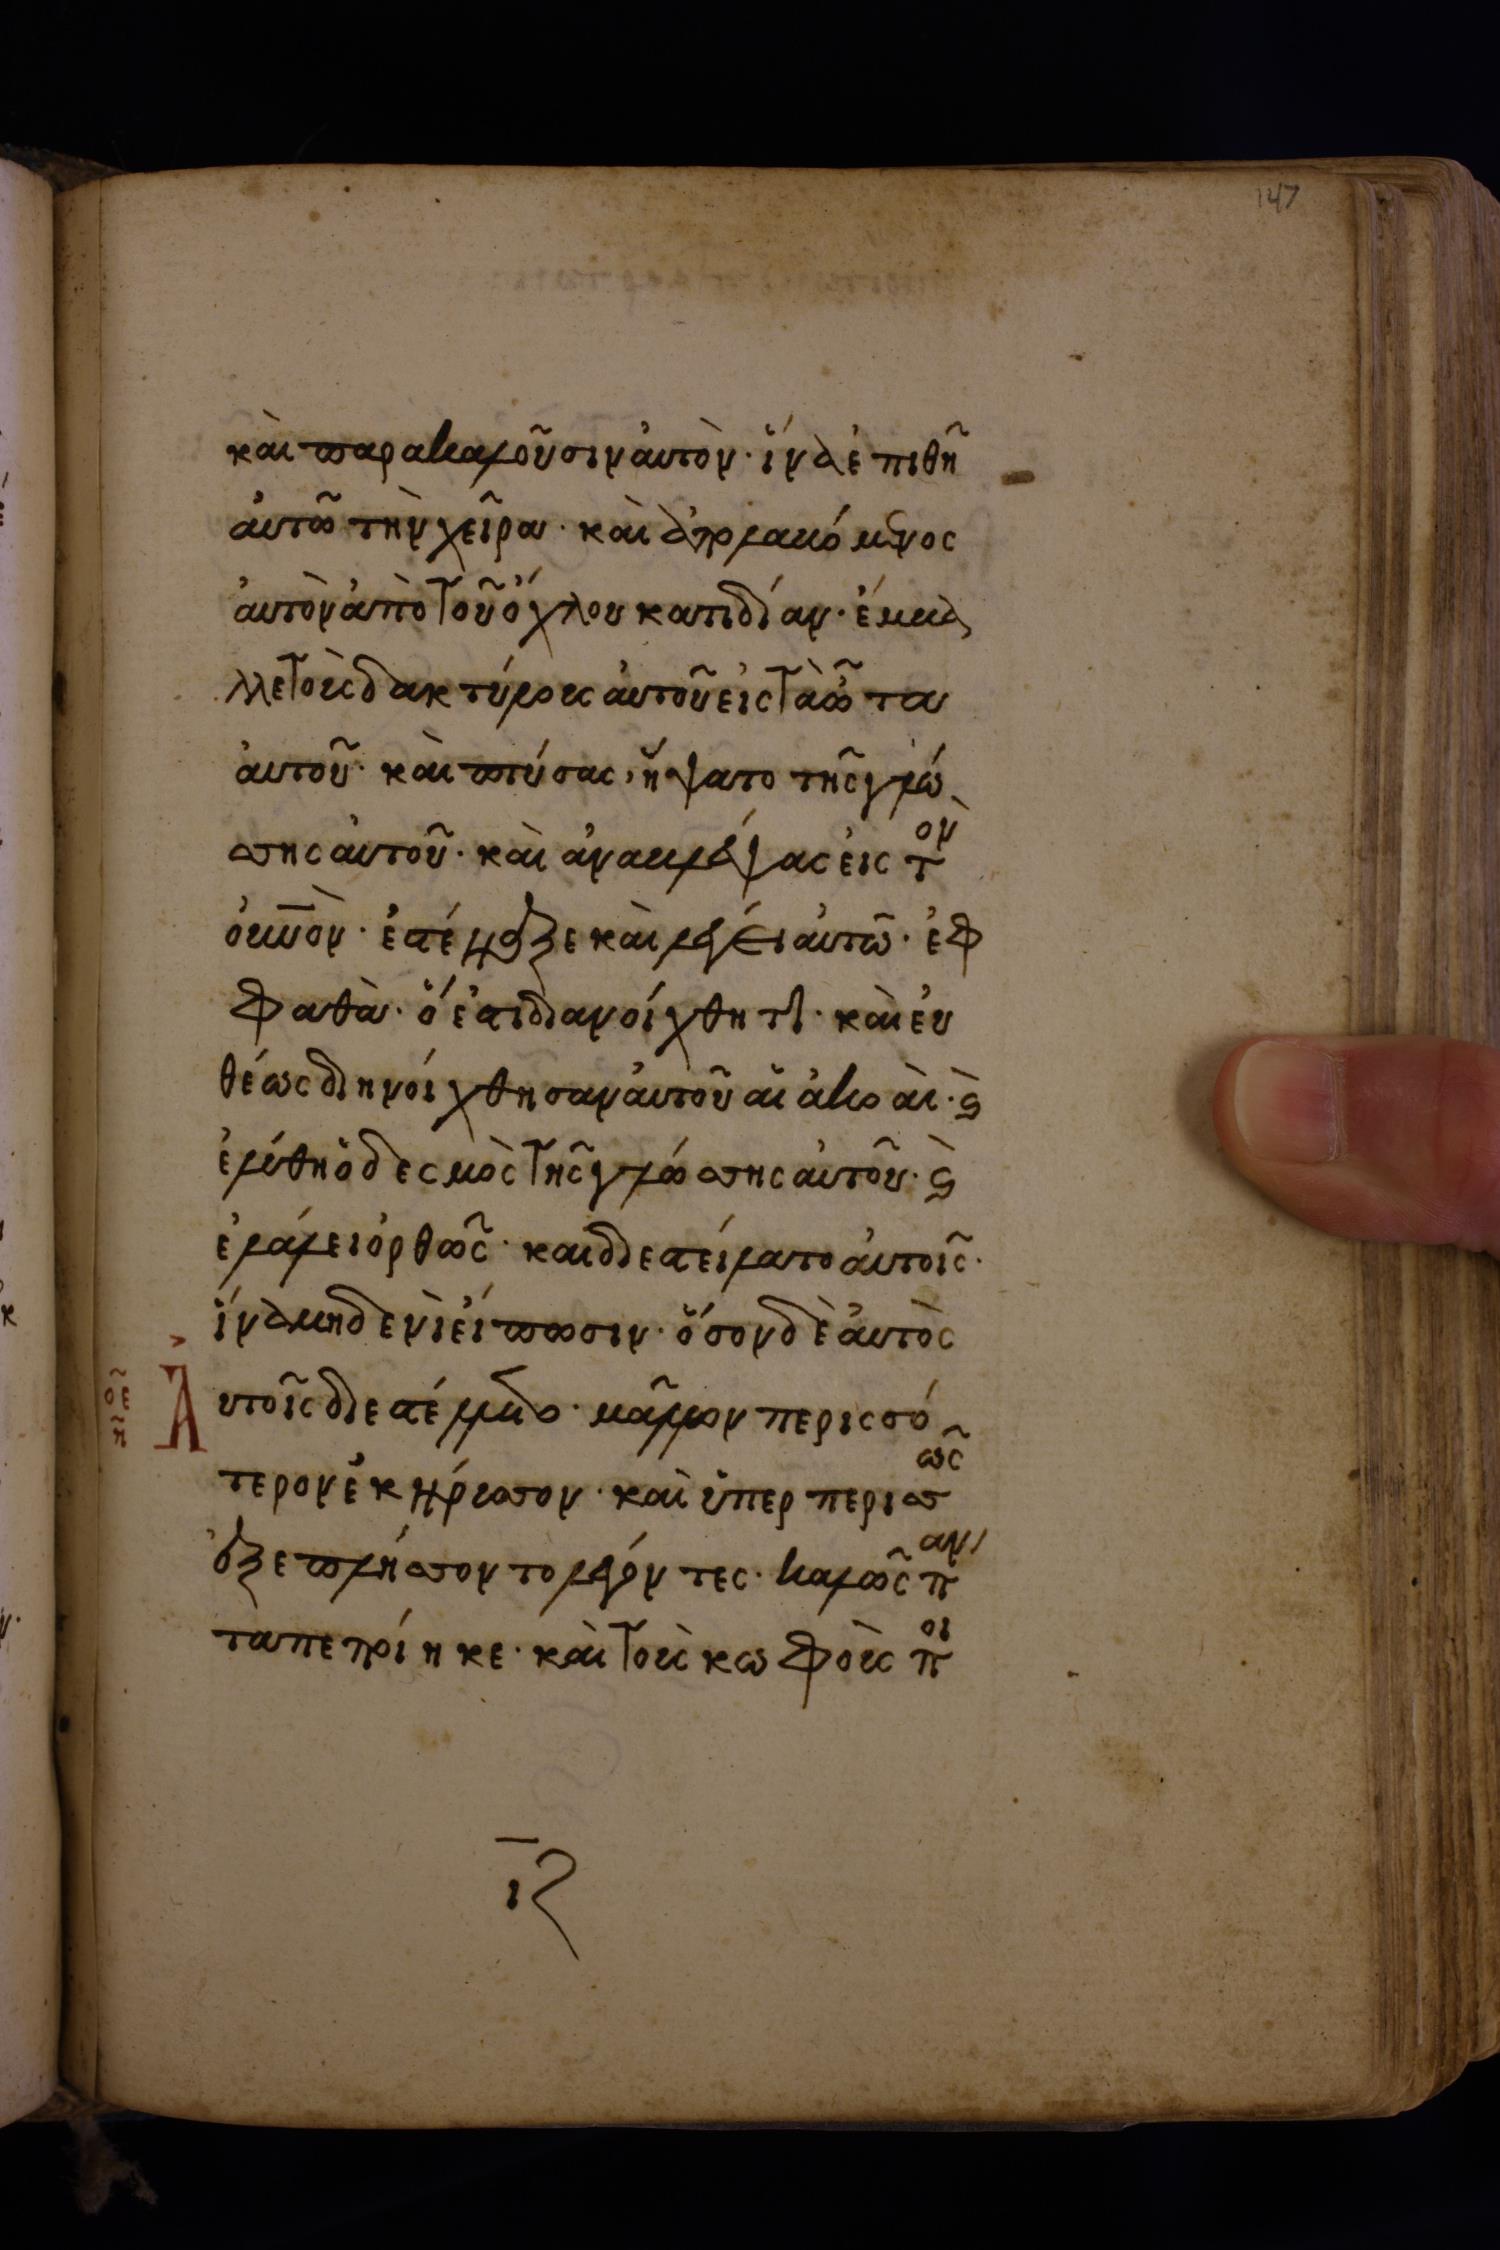 147
καὶ παρακαλοῦσιν ἀυτὸν· ἵνα ἐπιθῆ
ἀυτῶ τὴν χεῖρα· καὶ ἀπολαβόμενος
ἀυτὸν ἀπὸ τοῦ ὄχλου κατιδίαν· ἔβα
λε τοὺς δακτύλους ἀυτοῦ εἰς τὰ ὦτα
ἀυτοῦ· καὶ πτύσας, ἥψατο τῆς γλώ
σσης ἀυτοῦ· καὶ ἀναβλέψας εἰς τὸν
ὀυνὸν· ἐστέναξε καὶ λέγει ἀυτῶ· ἐφ
φαθὰ· ὅ ἐστι διανοίχθητι· καὶ ἐυ
θέως διηνοίχθησαν ἀυτοῦ αἵ ἀκοὰι· ϗ
ἐλύθη ὁ δεσμὸς τῆς γλώσσης ἀυτοῦ· ϗ
ἐλάλει ὀρθῶς· και διεστείλατο ἀυτοῖς·
ἵνα μηδενὶ εἴπωσιν· ὅσον δὲ ἀυτὸς
ἀυτοῖς διεστέλλετο· μᾶλλον περισσό
τερον ἐκήρυσσον· καὶ ὑπερπερισσῶς
ἐξεπλήσσοντο λέγοντες· καλῶς πάν
τα πεποίηκε· καὶ τοὺς κωφοὺς ποι
ιζ